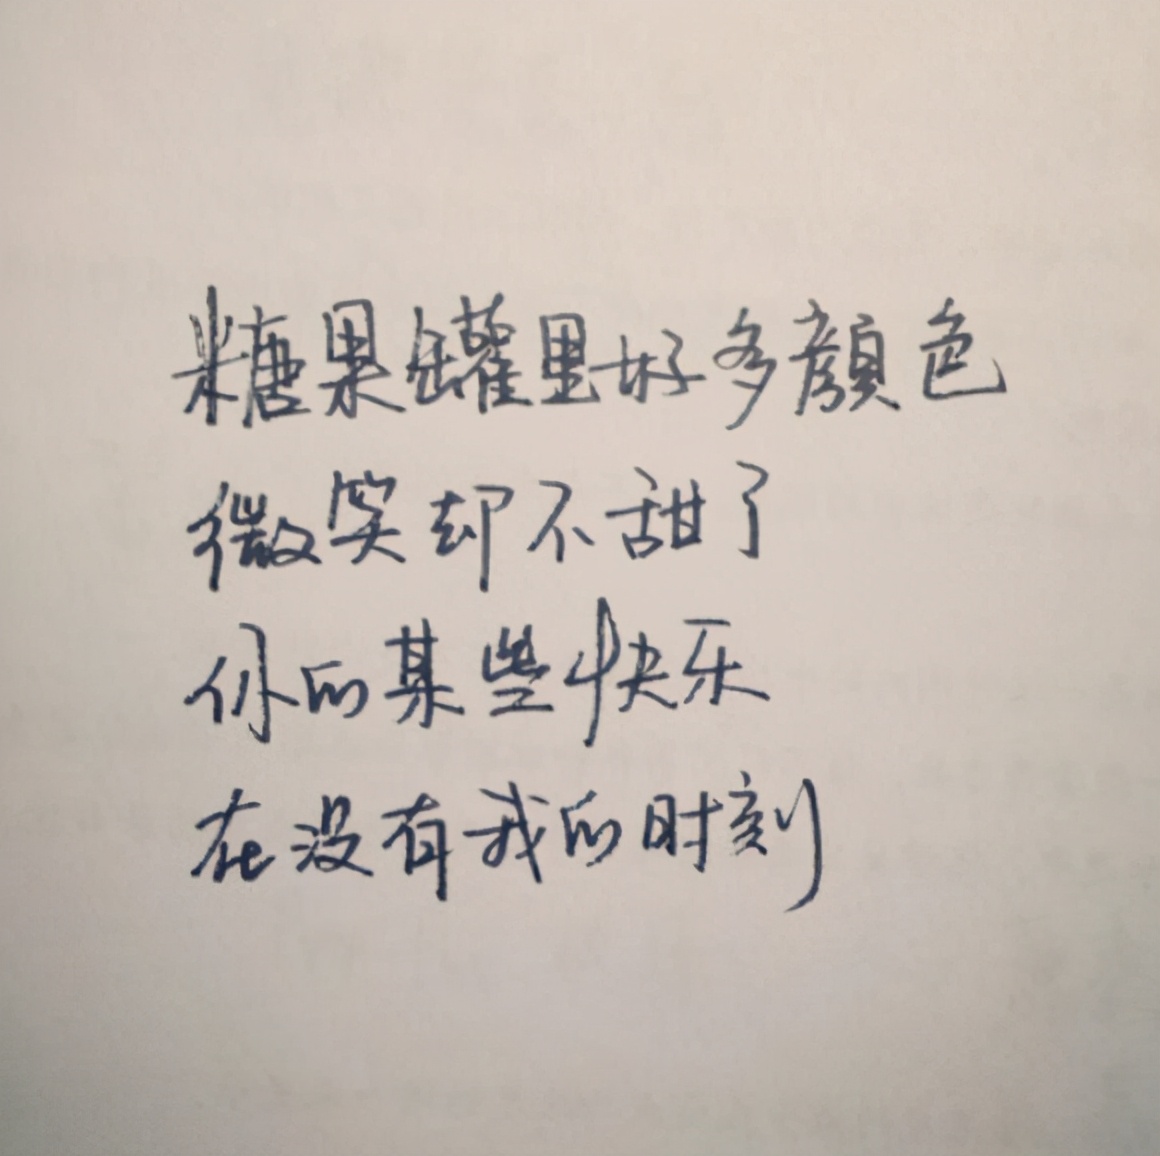 糖果罐里好多顏色
微笑却不甜了
你的某些快乐
在没有我的时刻